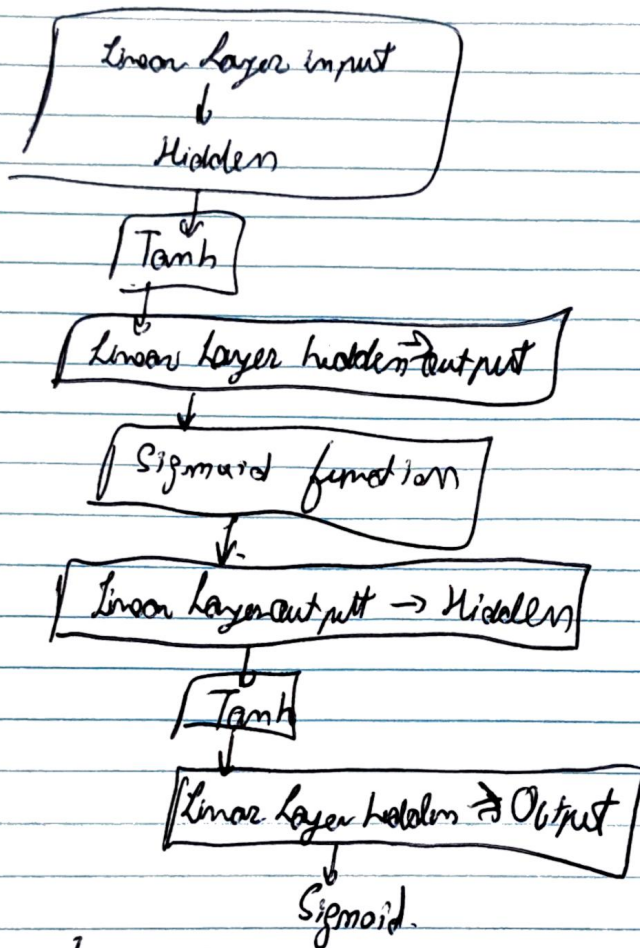 Linear Layer input
↓
Hidden
Tanh
Linear Layer hidden → output
Sigmoid function
Linear Layer output → Hidden
Tanh
Linear Layer hidden → Output
Sigmoid.